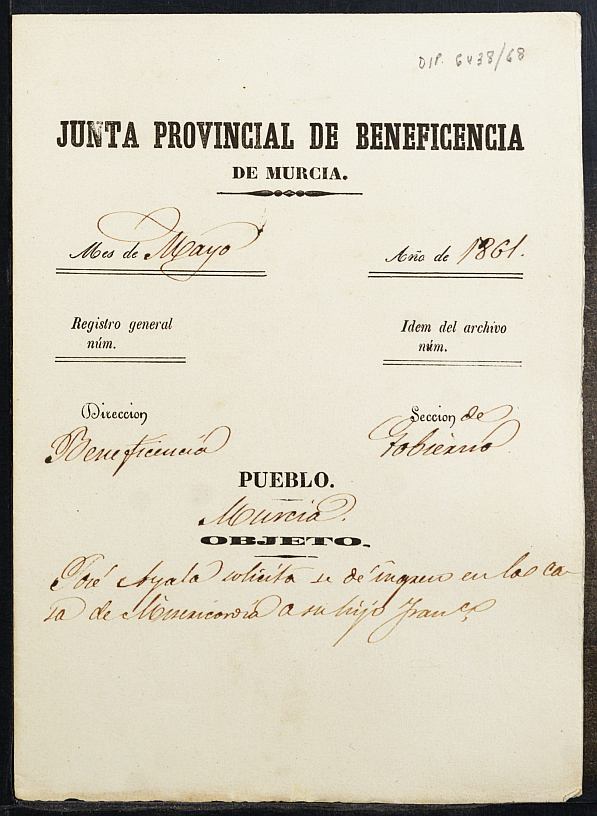 DIP. 6438/68
JUNTA PROVINCIAL DE BENEFICENCIA
DE MURCIA.
Mes de Mayo
Año de 1861.
Registro general
núm.
Idem del archivo
núm.
Direccion
Beneficencia
Seccion de
Gobierno
PUEBLO.
Murcia.
OBJETO.
José Ayala solicita se dé ingreso en la ca-
sa de Misericordia a su hijo Franco